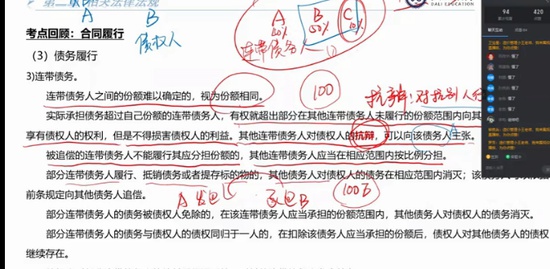 相关法律法规
DALI EDUCATION
94
420
A
B
债权人
A
20%
B
50%
C
10%
连带债务人
考点回顾：合同履行
（3）债务履行
3)连带债务。
连带债务人之间的份额难以确定的，视为份额相同。
100
抗辩：对抗别人
实际承担债务超过自己份额的连带债务人，有权就超出部分在其他连带债务人未履行的份额范围内向其
享有债权人的权利，但是不得损害债权人的利益。其他连带债务人对债权人的抗辩，可以向该债务人主张。
被追偿的连带债务人不能履行其应分担份额的，其他连带债务人应当在相应范围内按比例分担。
部分连带债务人履行、抵销债务或者提存标的物的，其他债务人对债权人的债务在相应范围内消灭；该
前条规定向其他债务人追偿。
A
B
100万
部分连带债务人的债务被债权人免除的，在该连带债务人应当承担的份额范围内，其他债务人对债权人的债务消灭。
部分连带债务人的债务与债权人的债权同归于一人的，在扣除该债务人应当承担的份额后，债权人对其他债务人的债
继续存在。